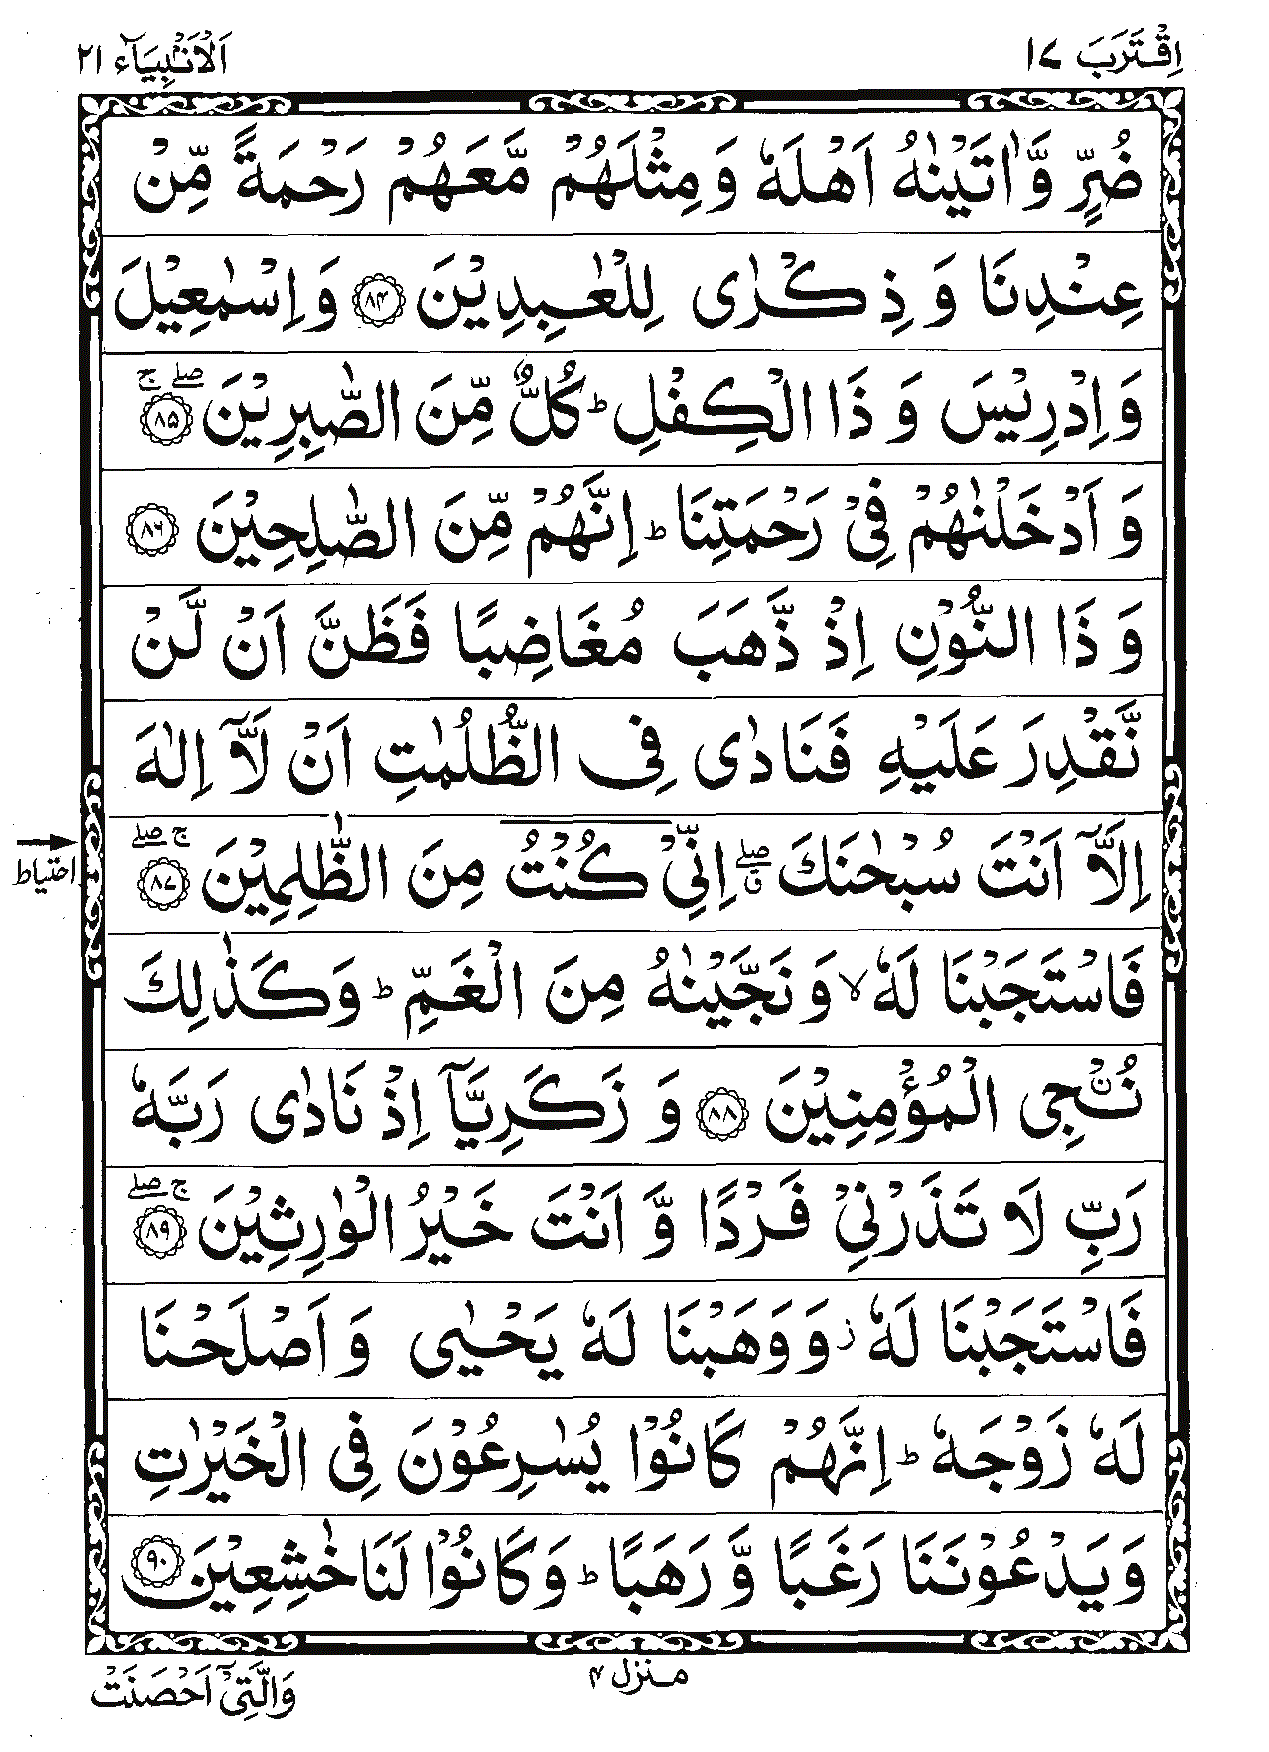 اِقْتَرَبَ ١٧
اَلْاَنْۢبِيَآء ٢١
ضُرٍّ وَّاٰتَيْنٰهُ اَهْلَهٗ وَمِثْلَهُمْ مَّعَهُمْ رَحْمَةً مِّنْ
عِنْدِنَا وَ ذِكْرٰى لِلْعٰبِدِيْنَ ۝٨٤ وَاِسْمٰعِيْلَ
وَاِدْرِيْسَ وَ ذَا الْكِفْلِ ؕ كُلٌّ مِّنَ الصّٰبِرِيْنَ ۝٨٥ صلے ج
وَ اَدْخَلْنٰهُمْ فِيْ رَحْمَتِنَا ؕ اِنَّهُمْ مِّنَ الصّٰلِحِيْنَ ۝٨٦
وَ ذَا النُّوْنِ اِذْ ذَّهَبَ مُغَاضِبًا فَظَنَّ اَنْ لَّنْ
نَّقْدِرَ عَلَيْهِ فَنَادٰى فِى الظُّلُمٰتِ اَنْ لَّاۤ اِلٰهَ
اِلَّاۤ اَنْتَ سُبْحٰنَكَ صلے ق اِنِّيْ كُنْتُ مِنَ الظّٰلِمِيْنَ ۝٨٧ ج صلے
احتیاط
فَاسْتَجَبْنَا لَهٗ ۙ وَنَجَّيْنٰهُ مِنَ الْغَمِّ ؕ وَكَذٰلِكَ
نُـْۨجِى الْمُؤْمِنِيْنَ ۝٨٨ وَ زَكَرِيَّاۤ اِذْ نَادٰى رَبَّهٗ
رَبِّ لَا تَذَرْنِيْ فَرْدًا وَّ اَنْتَ خَيْرُ الْوٰرِثِيْنَ ۝٨٩ ج صلے
فَاسْتَجَبْنَا لَهٗ ز وَوَهَبْنَا لَهٗ يَحْيٰى وَاَصْلَحْنَا
لَهٗ زَوْجَهٗ ؕ اِنَّهُمْ كَانُوْا يُسٰرِعُوْنَ فِى الْخَيْرٰتِ
وَيَدْعُوْنَنَا رَغَبًا وَّ رَهَبًا ؕ وَكَانُوْا لَنَا خٰشِعِيْنَ ۝٩٠
منزل ۴
وَالَّتِيْۤ اَحْصَنَتْ